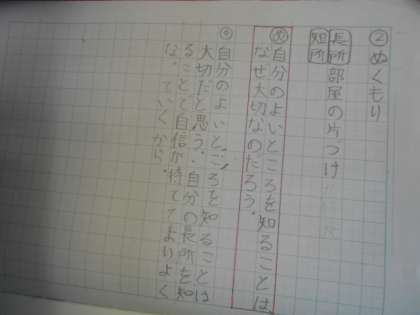 ②ぬくもり
長所 部屋の片づけ
短所
め 自分のよいところを知ることは
なぜ大切なのだろう。
自分のよいところを知ることは
大切だと思う。自分の長所を知
ることで自信が持ててよりよく
なっていくから。